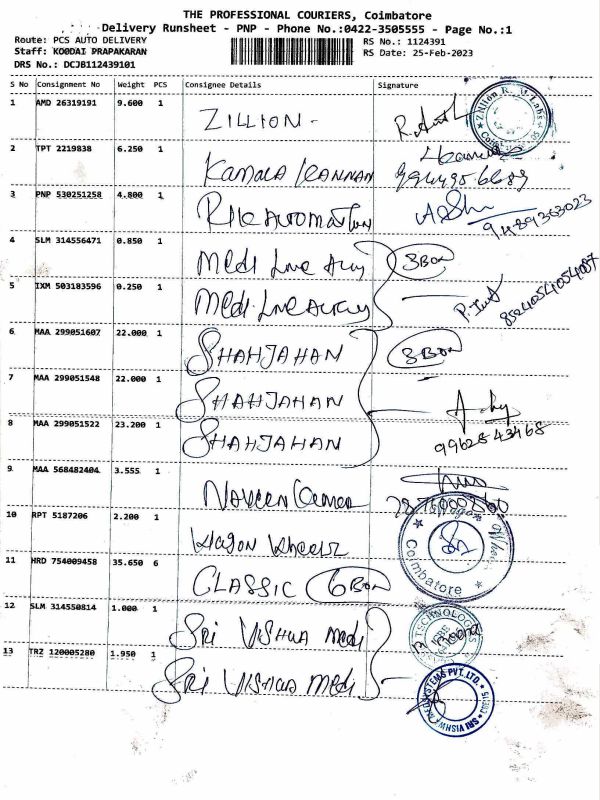 THE PROFESSIONAL COURIERS, Coimbatore
Delivery Runsheet - PNP - Phone No.:0422-3505555 - Page No.:1
Route: PCS AUTO DELIVERY
RS No.: 1124391
Staff: KOODAI PRAPAKARAN
RS Date: 25-Feb-2023
DRS No.: DCJB112439101
S No Consignment No Weight PCS Consignee Details Signature
1 AMD 26319191 9.600 1 ZILLION -
Zillion
Labs
2 TPT 2219838 6.250 1 Kamala Kannan
3 PNP 530251258 4.800 1
9489363023
4 SLM 314556471 0.850 1 Medi Line 3 Box
5 IXM 503183596 0.250 1 Medi Line
6 MAA 299051607 22.000 1 SHAHJAHAN 3 Box
7 MAA 299051548 22.000 1 SHAHJAHAN
8 MAA 299051522 23.200 1 SHAHJAHAN
9962543468
9 MAA 568482404 3.555 1 Naveen Kumar
10 RPT 5187206 2.200 1 Wagon Wheels
Coimbatore
11 HRD 754009458 35.650 6 CLASSIC 6 Box
12 SLM 314550814 1.000 1 Sri Vishwa Medi
TECHNOLOGIES
13 TRZ 120005280 1.950 1 Sri Vishwa Medi
SRI VISHWA MEDSYSTEMS PVT. LTD.